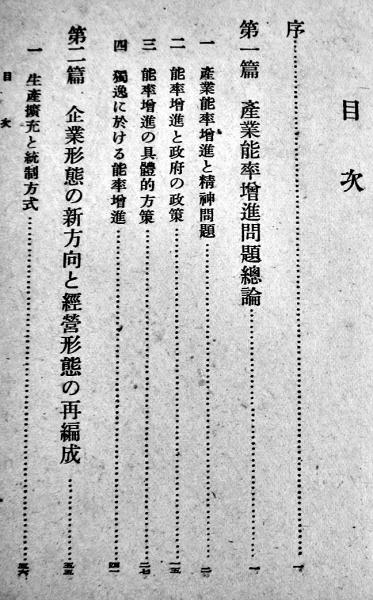 目次
序……一
第一篇 產業能率增進問題總論……一
一 產業能率增進と精神問題……二
二 能率增進と政府の政策……一五
三 能率增進の具體的方策……二七
四 獨逸に於ける能率增進……四一
第二篇 企業形態の新方向と經營形態の再編成……五五
一 生產擴充と統制方式……五六
目次